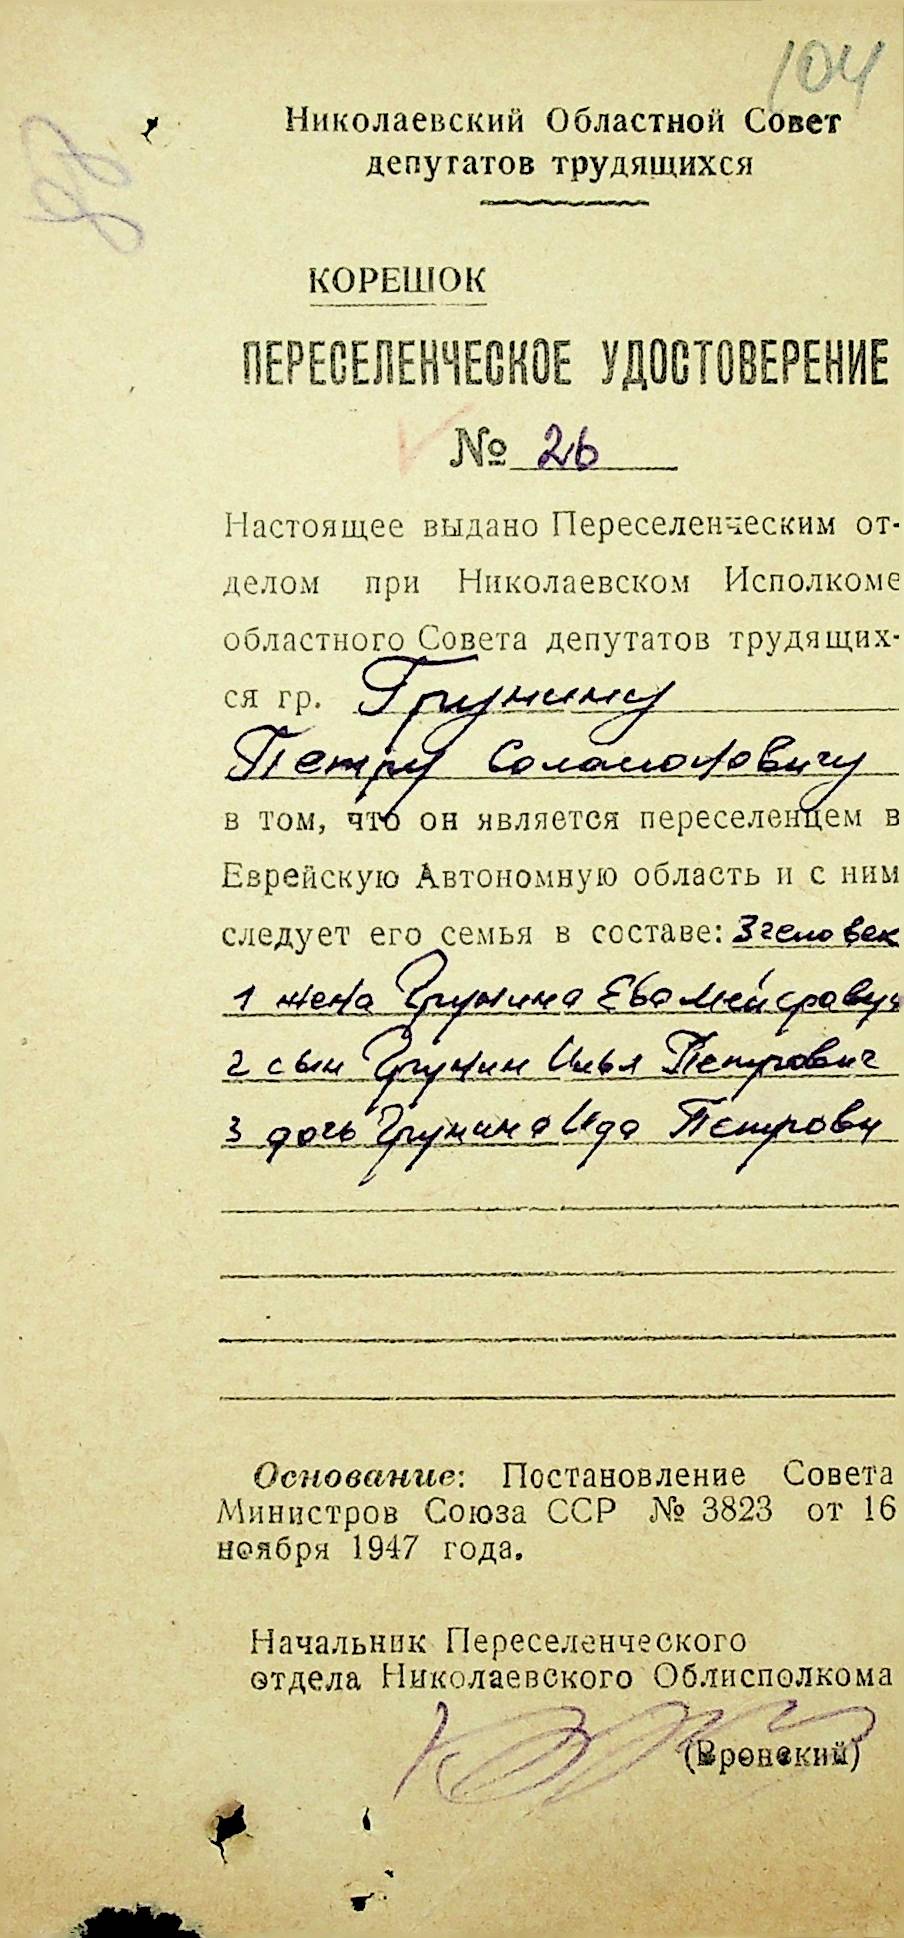 104
98
Николаевский Областной Совет
депутатов трудящихся
КОРЕШОК
ПЕРЕСЕЛЕНЧЕСКОЕ УДОСТОВЕРЕНИЕ
№ 26
Настоящее выдано Переселенческим от-
делом при Николаевском Исполкоме
областного Совета депутатов трудящих-
ся гр. Грунину
Петру Соломоновичу
в том, что он является переселенцем в
Еврейскую Автономную область и с ним
следует его семья в составе: 3 человек
1 жена Грунина Ева
2 сын Грунин Илья Петрович
3 дочь Грунина Ида Петровн
Основание: Постановление Совета
Министров Союза ССР № 3823 от 16
ноября 1947 года.
Начальник Переселенческого
отдела Николаевского Облисполкома
(Вронский)